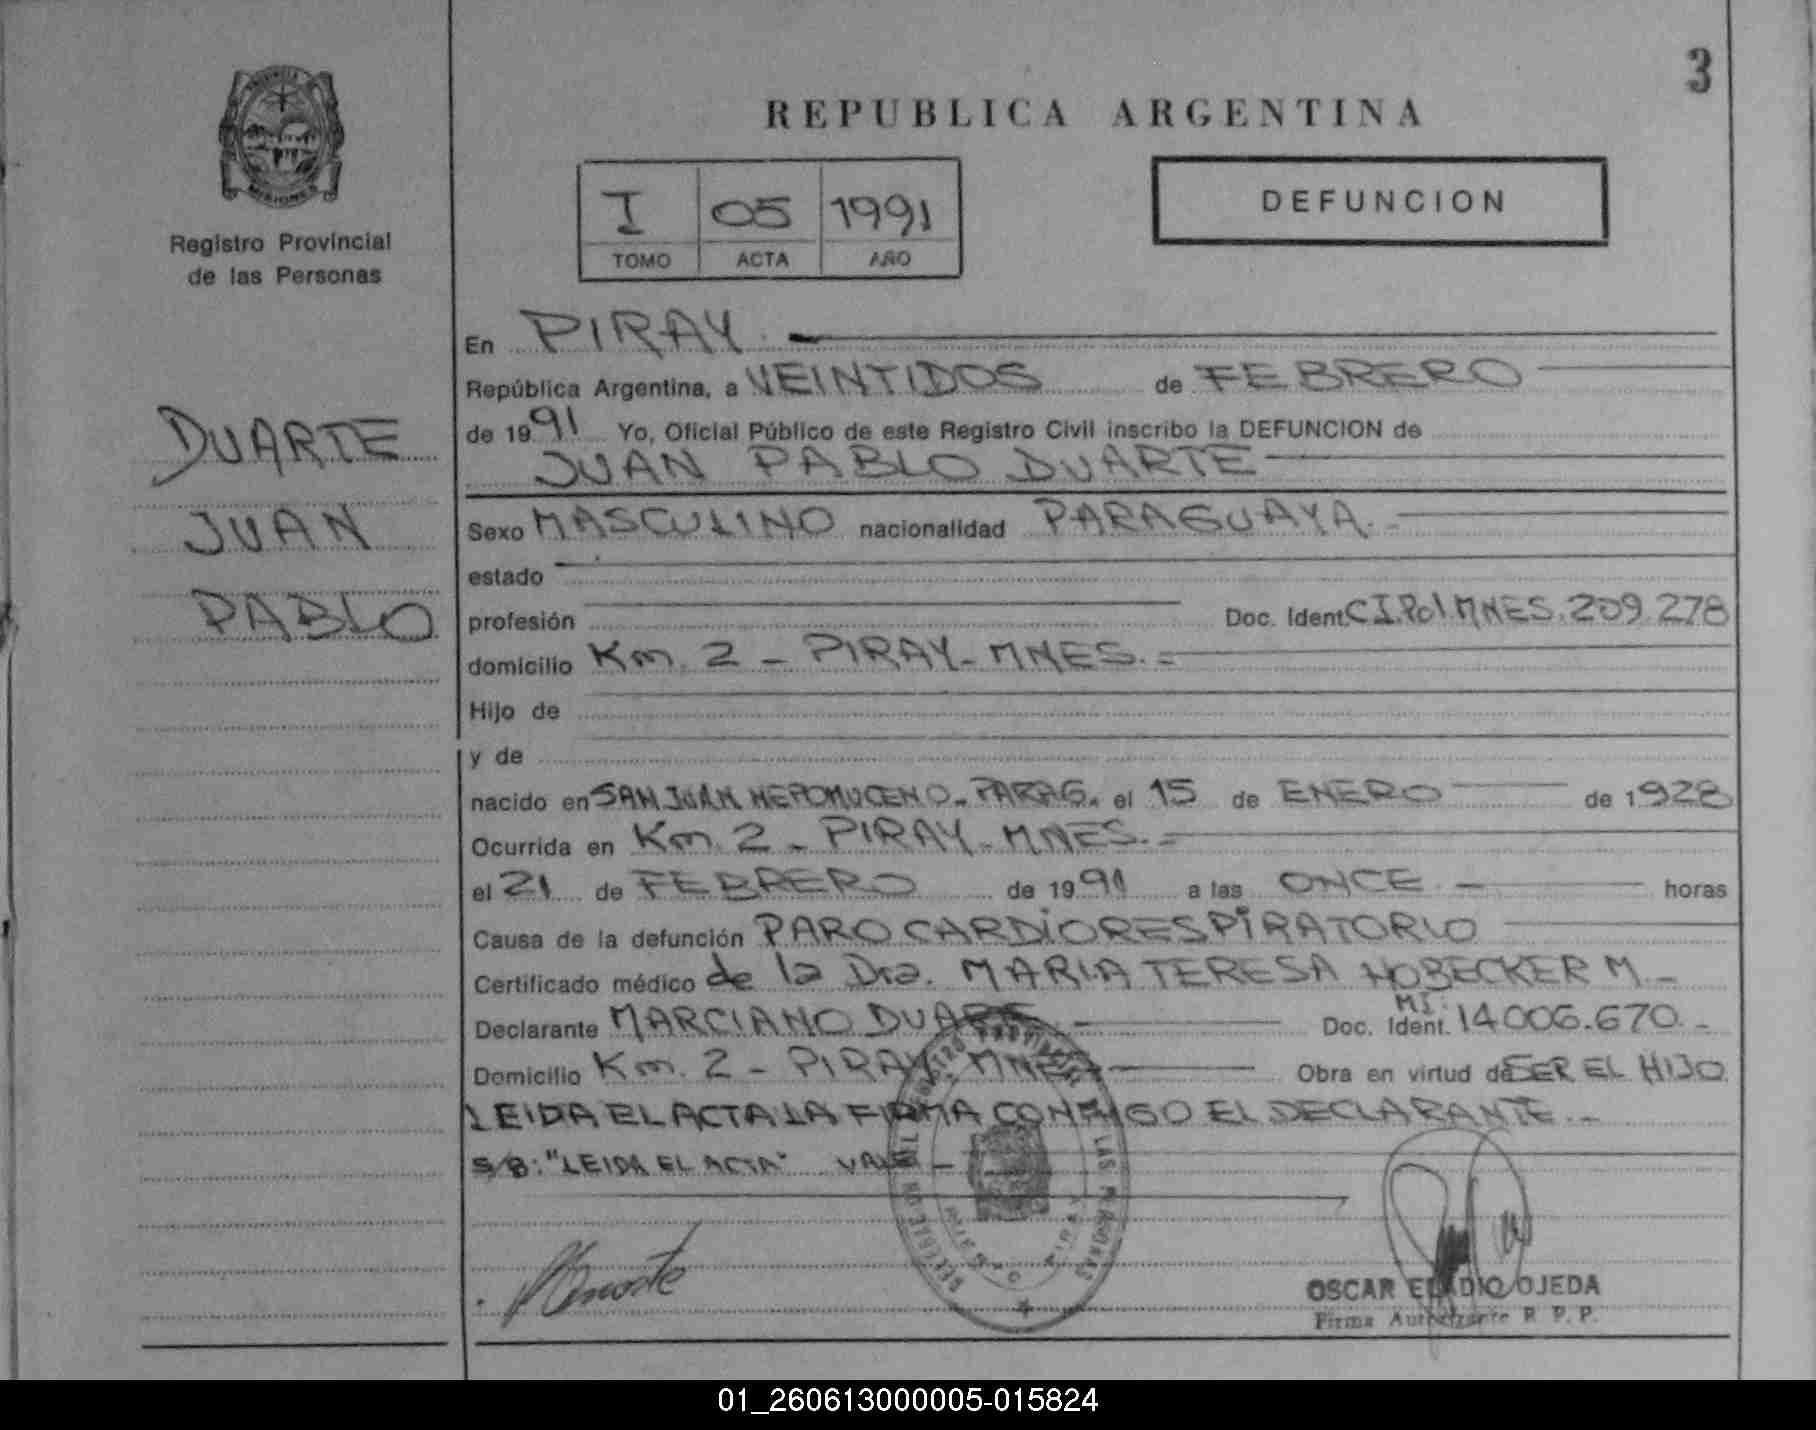 3
REPUBLICA ARGENTINA
PROVINCIA
MISIONES
Registro Provincial
de las Personas
I 05 1991
TOMO ACTA AÑO
DEFUNCION
DUARTE
JUAN
PABLO
En PIRAY
República Argentina, a VEINTIDOS de FEBRERO
de 1991 Yo, Oficial Público de este Registro Civil inscribo la DEFUNCION de
JUAN PABLO DUARTE
Sexo MASCULINO nacionalidad PARAGUAYA.
estado
profesión Doc. Ident. C.I.Pol MNES. 209.278
domicilio Km. 2 - PIRAY - MNES. -
Hijo de
y de
nacido en SAN JUAN NEPOMUCENO - PARAG. el 15 de ENERO de 1928
Ocurrida en Km. 2 - PIRAY - MNES. -
el 21 de FEBRERO de 1991 a las ONCE - horas
Causa de la defunción PARO CARDIORESPIRATORIO
Certificado médico de la Dra. MARIA TERESA HOBECKER M. -
Declarante MARCIANO DUARTE Doc. Ident. M.I. 14006.670. -
Domicilio Km. 2 - PIRAY - MNES Obra en virtud de SER EL HIJO
LEIDA EL ACTA LA FIRMA CONMIGO EL DECLARANTE. -
S/B: "LEIDA EL ACTA" VALE -
Duarte
OSCAR ELADIO OJEDA
Firma Autorizante R. P. P.
01_260613000005-015824